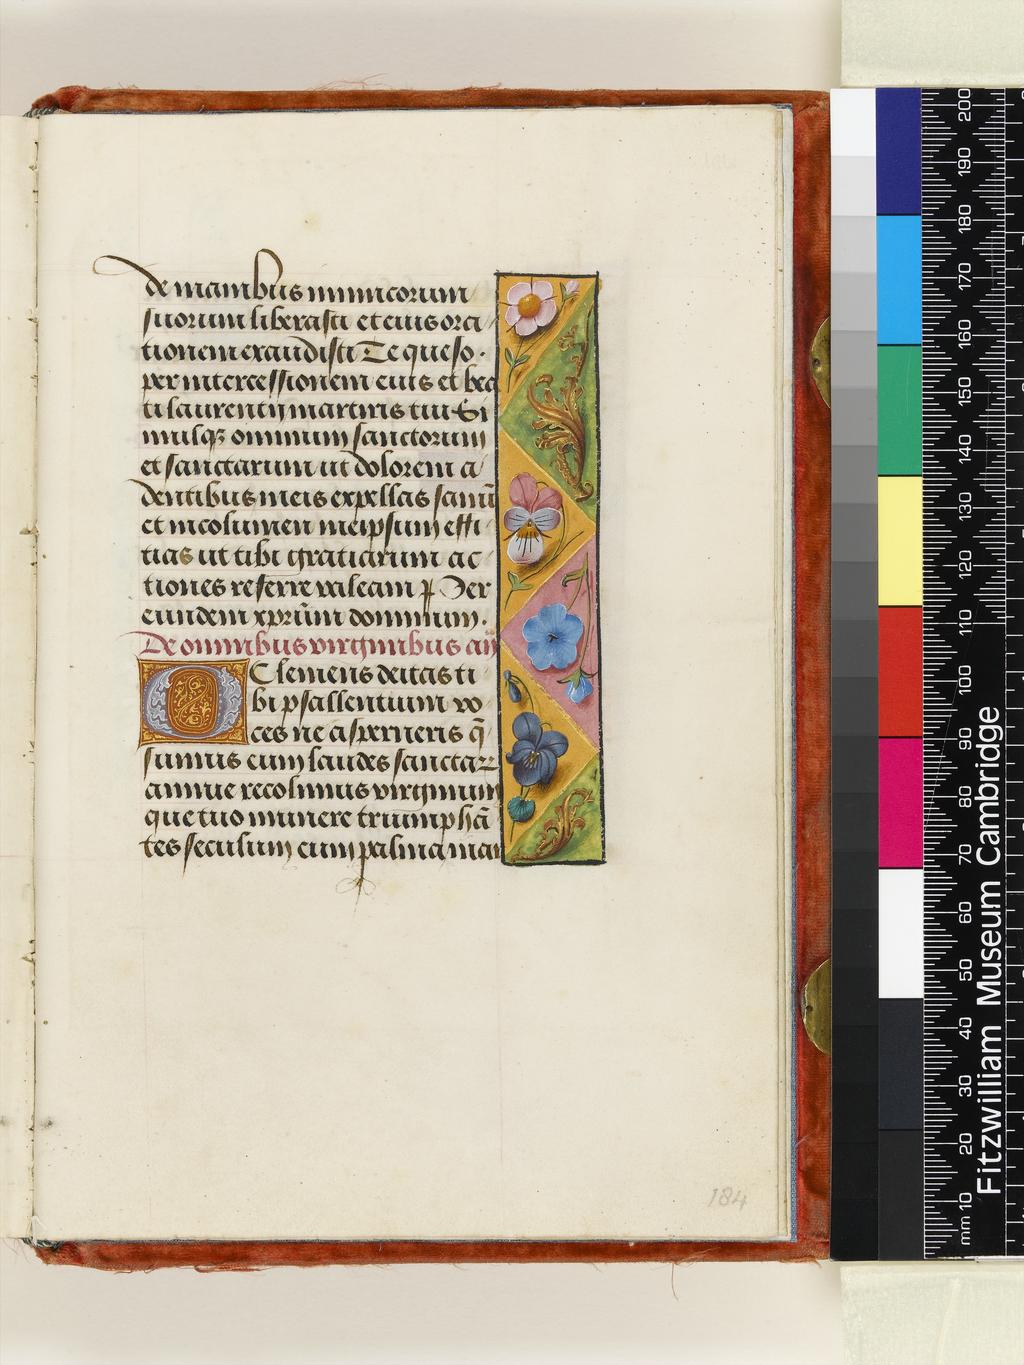 de manibus inimicorum
suorum liberasti et eius ora
tionem exaudisti Te queso.
per intercessionem eius et bea
ti laurentij martiris tui Si
milqz omnium sanctorum
et sanctarum ut dolorem a
dentibus meis expellas sanū
et incolumen meipsum effi
cias ut tibi gratiarum ac
tiones referre valeam Per
eundem xprūm dominum.
De omnibus virginibus añ
O Clemens deitas ti
bi psallentium vo
ces ne asperneris q̄
sumus cum laudes sanctaꝝ
annue recolimus virginum
que tuo munere triumphā
tes seculum cum palma mar
184
Fitzwilliam Museum Cambridge
mm 10 20 30 40 50 60 70 80 90 100 110 120 130 140 150 160 170 180 190 200